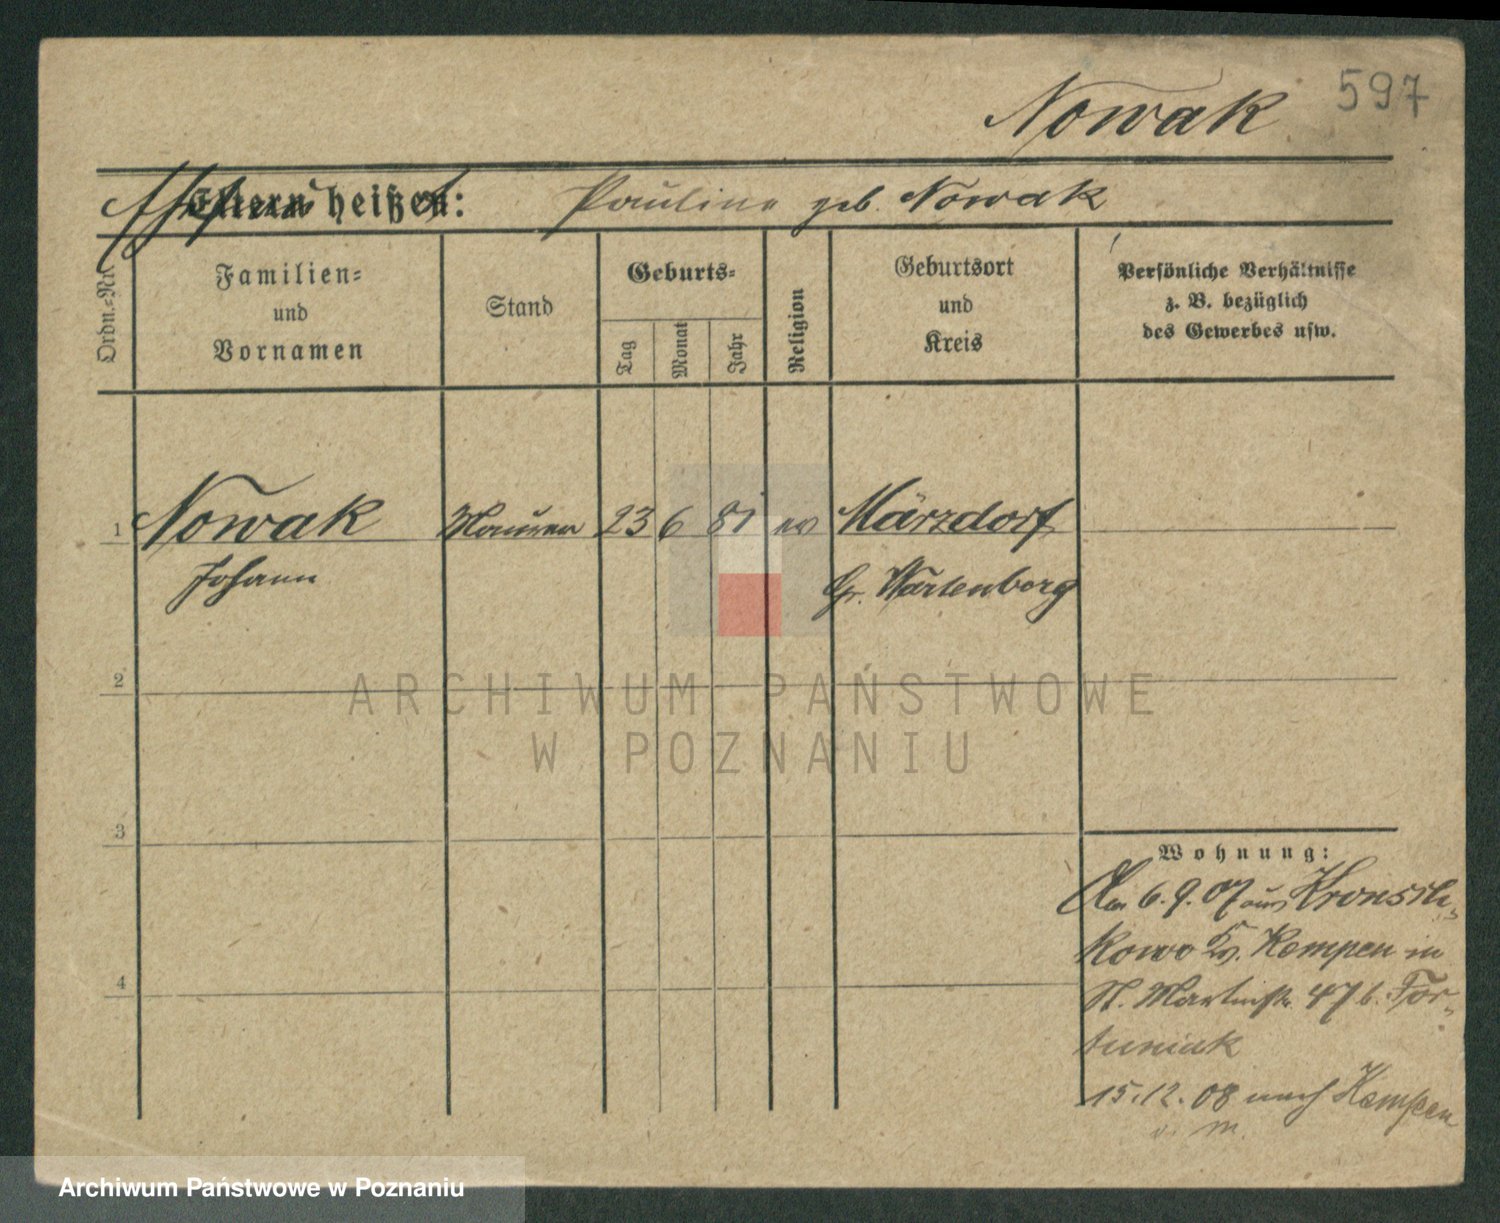 Nowak
597
Eltern heißen: Pauline geb. Nowak
Ordn.-Nr.
Familien-
und
Vornamen
Stand
Geburts-
Tag
Monat
Jahr
Religion
Geburtsort
und
Kreis
Persönliche Verhältnisse
z. B. bezüglich
des Gewerbes usw.
1 Nowak Maurer 23 6 81 ev Märzdorf
Johann Gr. Wartenberg
2
ARCHIWUM PAŃSTWOWE
W POZNANIU
3
Wohnung:
6.9.07 aus
kowo Kr. Kempen in
St. Martinstr. 47 b. For-
tuniak
15.12.08 nach Kempen
4
Archiwum Państwowe w Poznaniu